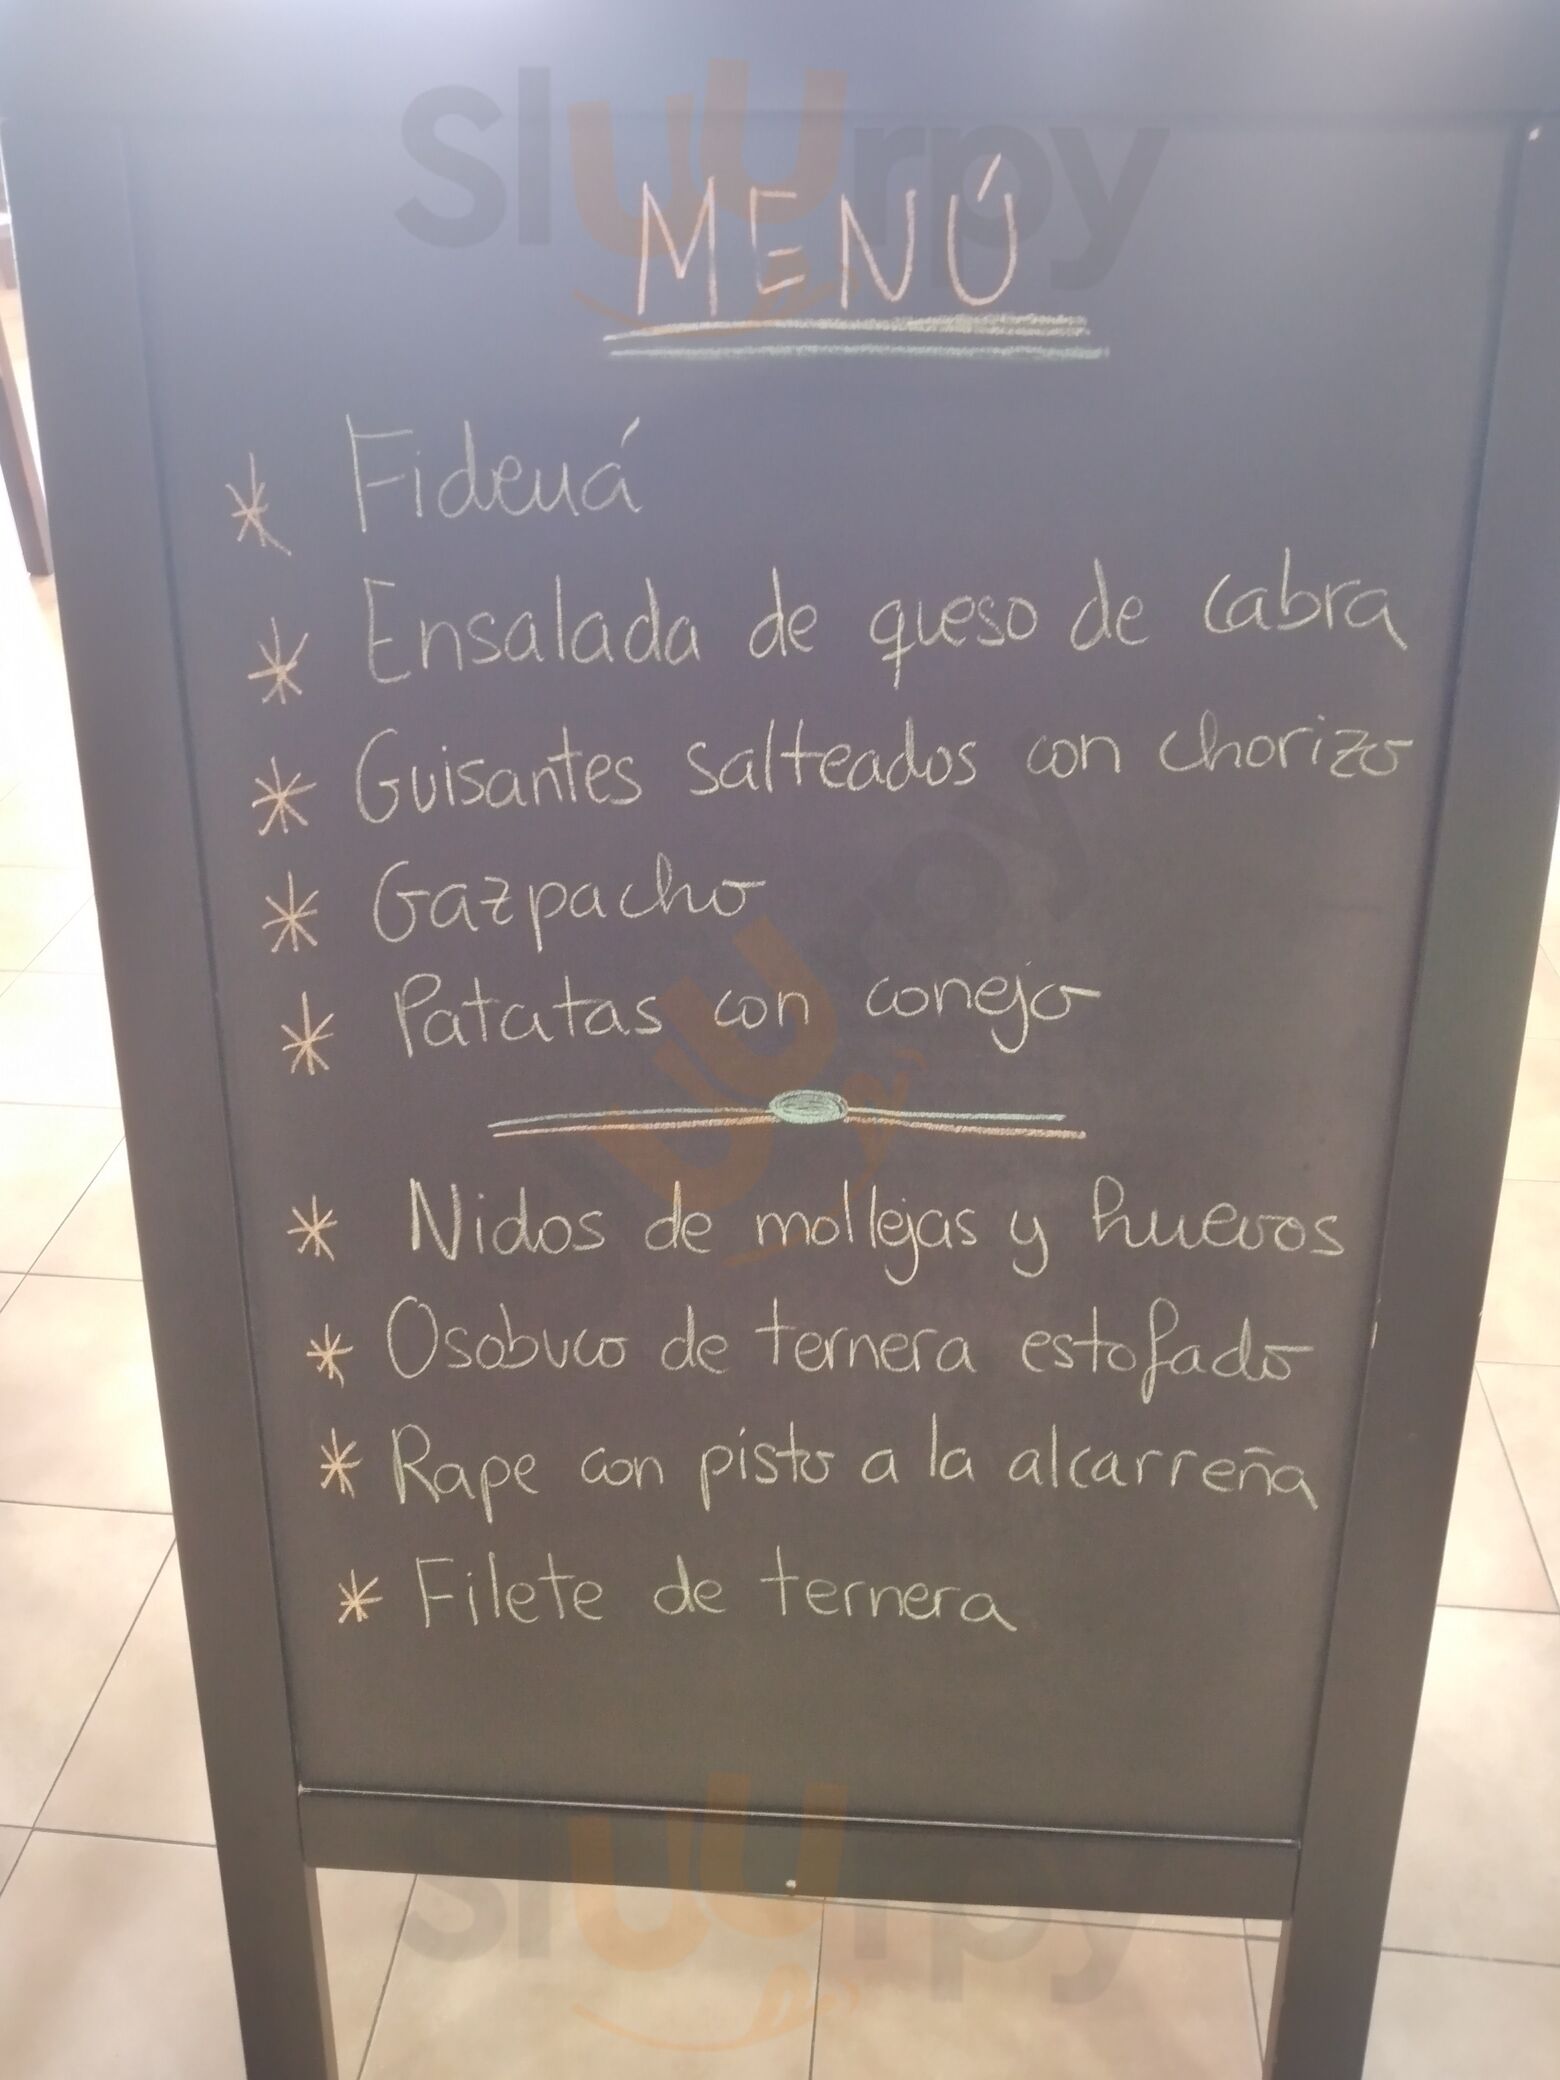 Sluurpy
MENÚ
* Fideuá
* Ensalada de queso de cabra
* Guisantes salteados con chorizo
* Gazpacho
* Patatas con conejo
* Nidos de mollejas y huevos
* Osobuco de ternera estofado
* Rape con pisto a la alcarreña
* Filete de ternera
Sluurpy